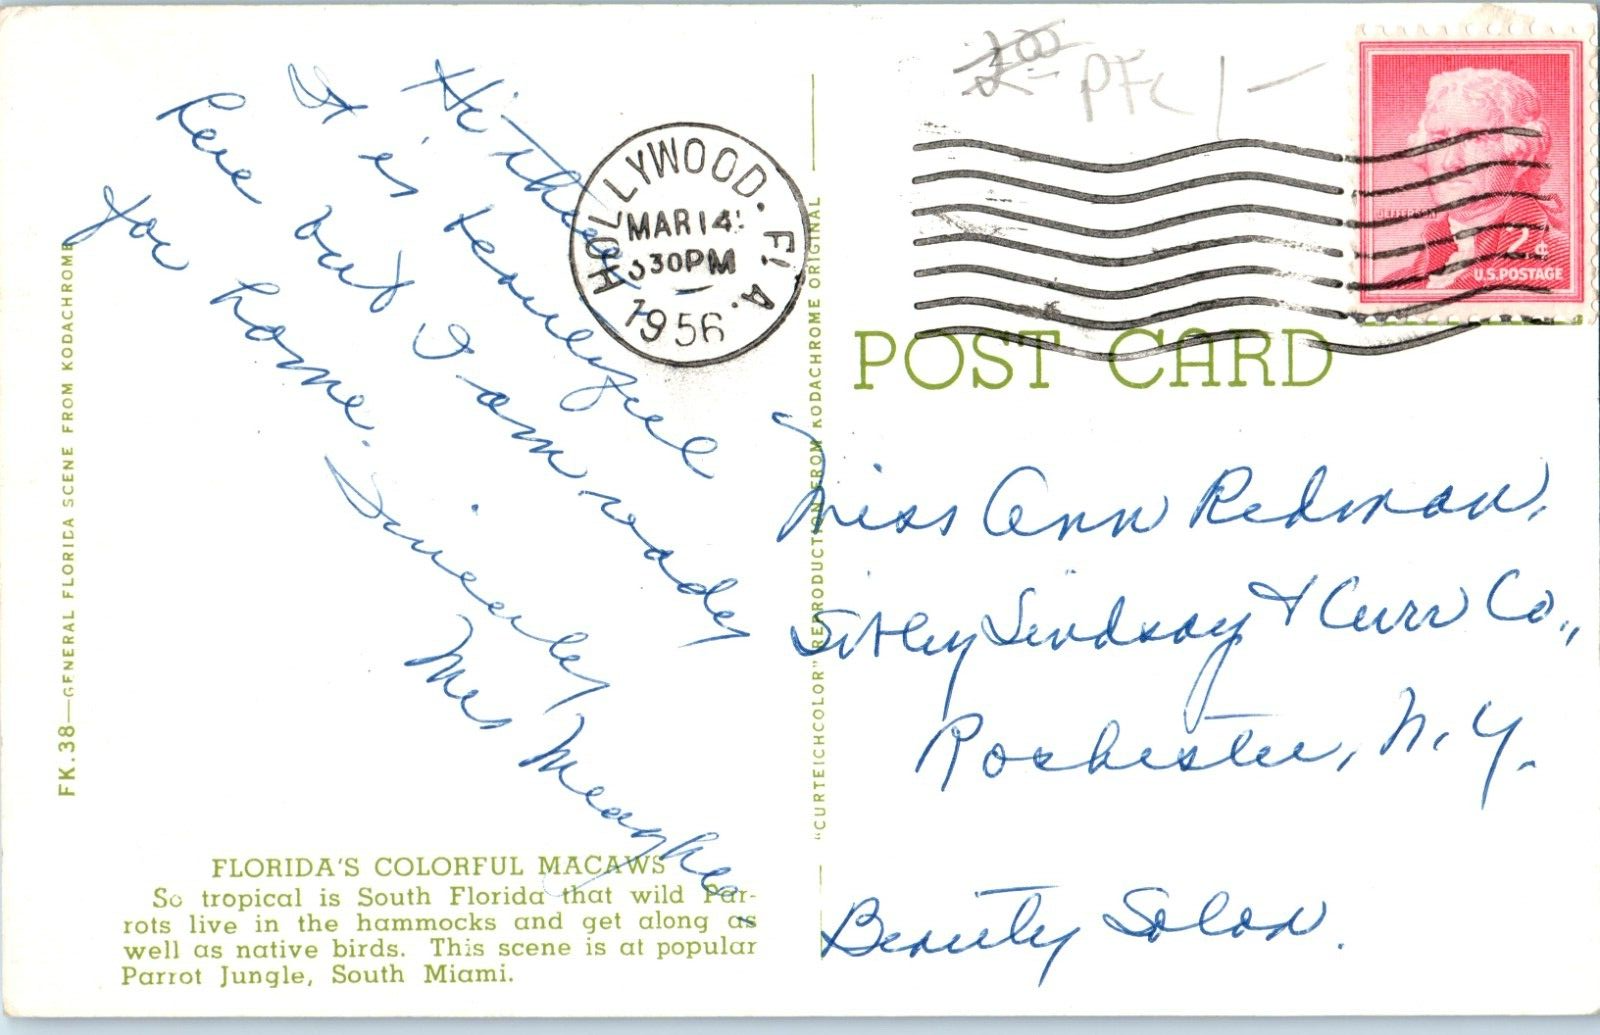 Hi there
It is beautiful
here but I am ready
for home.
Sincerely
Mrs Meagher
HOLLYWOOD. FLA.
MAR 14
30 PM
1956
2.00
PFC 1-
JEFFERSON
2¢
U.S. POSTAGE
POST CARD
Miss Ann Redman,
Sibley Lindsay & Curr Co.,
Rochester, N.Y.
Beauty Salon.
FK.38—GENERAL FLORIDA SCENE FROM KODACHROME
"CURTEICHCOLOR" REPRODUCTION FROM KODACHROME ORIGINAL
FLORIDA'S COLORFUL MACAWS
So tropical is South Florida that wild Par-
rots live in the hammocks and get along as
well as native birds. This scene is at popular
Parrot Jungle, South Miami.